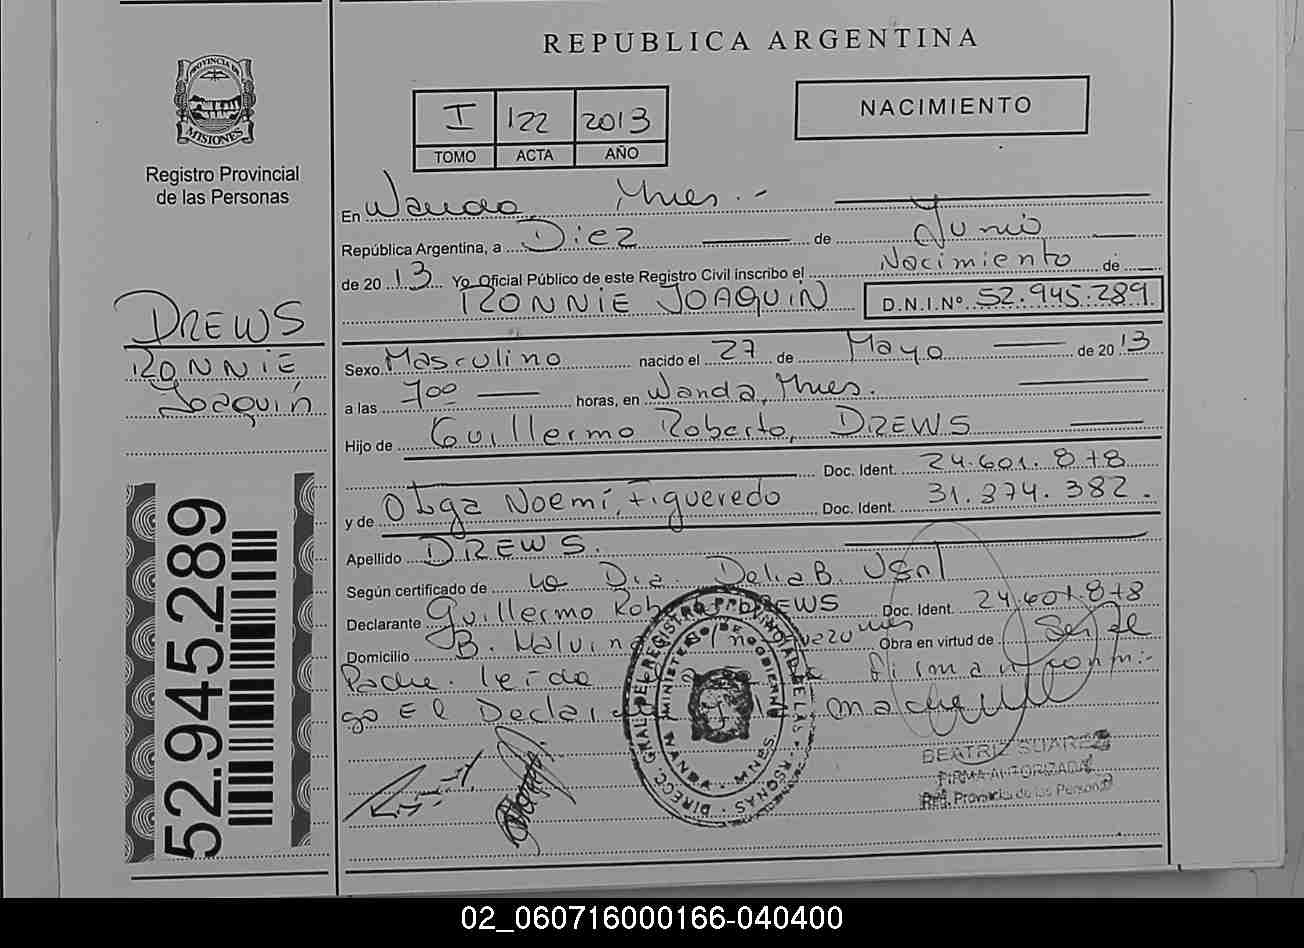 REPUBLICA ARGENTINA
PROVINCIA DE
MISIONES
Registro Provincial
de las Personas
I 122 2013
TOMO ACTA AÑO
NACIMIENTO
En Wanda, Mnes.-
República Argentina, a Diez de Junio
de 2013 Yo Oficial Público de este Registro Civil inscribo el Nacimiento de
RONNIE JOAQUIN D.N.I.Nº 52.945.289
DREWS
RONNIE
Joaquín
Sexo Masculino nacido el 27 de Mayo de 2013
a las 7oo horas, en Wanda, Mnes.
Hijo de Guillermo Roberto, DREWS
Doc. Ident. 24.601.878
y de Olga Noemí, Figueredo Doc. Ident. 31.374.382.
Apellido DREWS.
Según certificado de la Dra. Delia B.
Declarante Guillermo DREWS Doc. Ident. 24.601.878
Domicilio B. Obra en virtud de Ser el
Padre. leída firman conmi-
go El
52.945.289
BEATRIZ SUAREZ
FIRMA AUTORIZADA
Reg. Provincial de las Personas
02_060716000166-040400